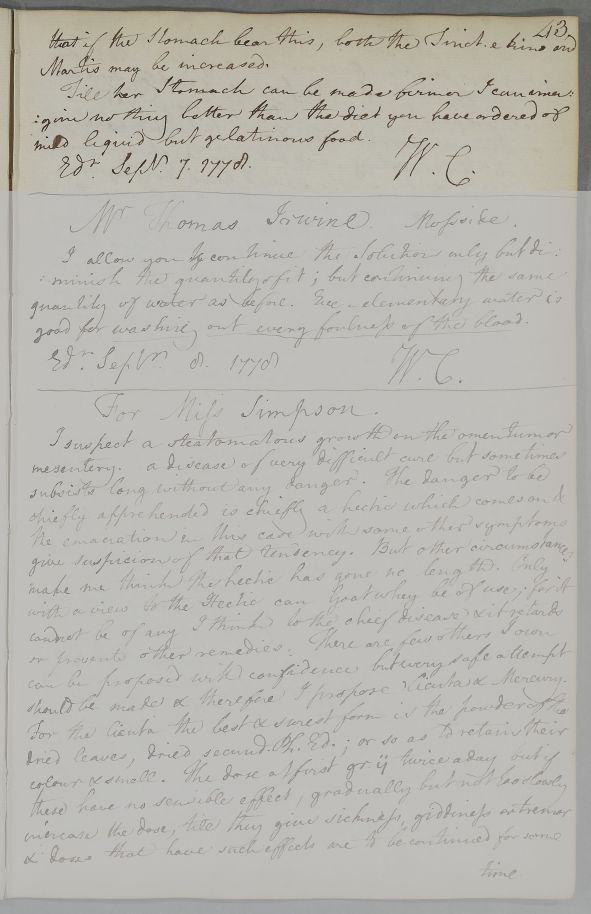 43
that if the Stomach bear this, both the Tinct. e kino and
Martis may be increased.
Till her Stomach can be made firmer I can ima:
:gine nothing better than the diet you have ordered of
mild liquid but gelatinous food.
Edr. Septr. 7. 1778. W. C.
Mr Thomas Irwine. Mosside.
I allow you to continue the Solution only but di:
:minish the quantity of it; but continuing the same
quantity of water as before. The elementary water is
good for washing out every foulness of the blood.
Edr. Septr. 8. 1778 W. C.
For Miss Simpson.
I suspect a steatomatous growth on the omentum or
mesentery. a disease of very difficult cure but sometimes
subsists long without any danger. The danger to be
chiefly apprehended is chiefly a hectic which comes on &
the emaciation in this case with some other symptoms
give suspicion of that tendency. But other circumstances
make me think the hectic has gone no length. Only
with a view to the Hectic can Goat whey be of use; for it
cannot be of any I think to the chief disease & it retards
or prevents other remedies. There are few others I own
can be proposed with confidence but very safe attempt
should be made & therefore I propose Cicuta & Mercury.
For the Cicuta the best & surest form is the powder of the
dried leaves, dried secund. Ph. Ed.; or so as to retain their
colour & smell. The dose at first gr. ij twice a day but if
these have no sensible effect, gradually but not too slowly
increase the dose, till they give sickness, giddiness or tremor
& doses that have such effects are to be continued for some
time